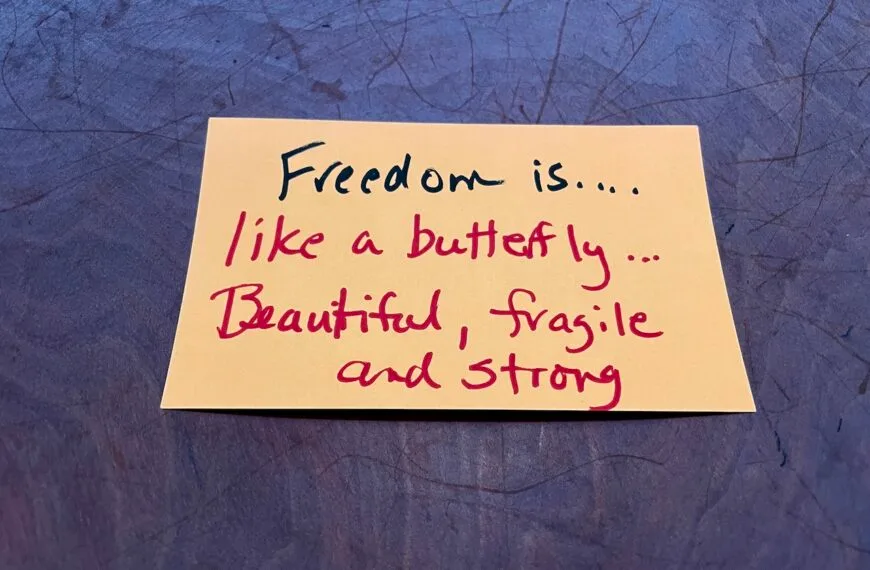 Freedom is....
like a butterfly...
Beautiful, fragile
and strong